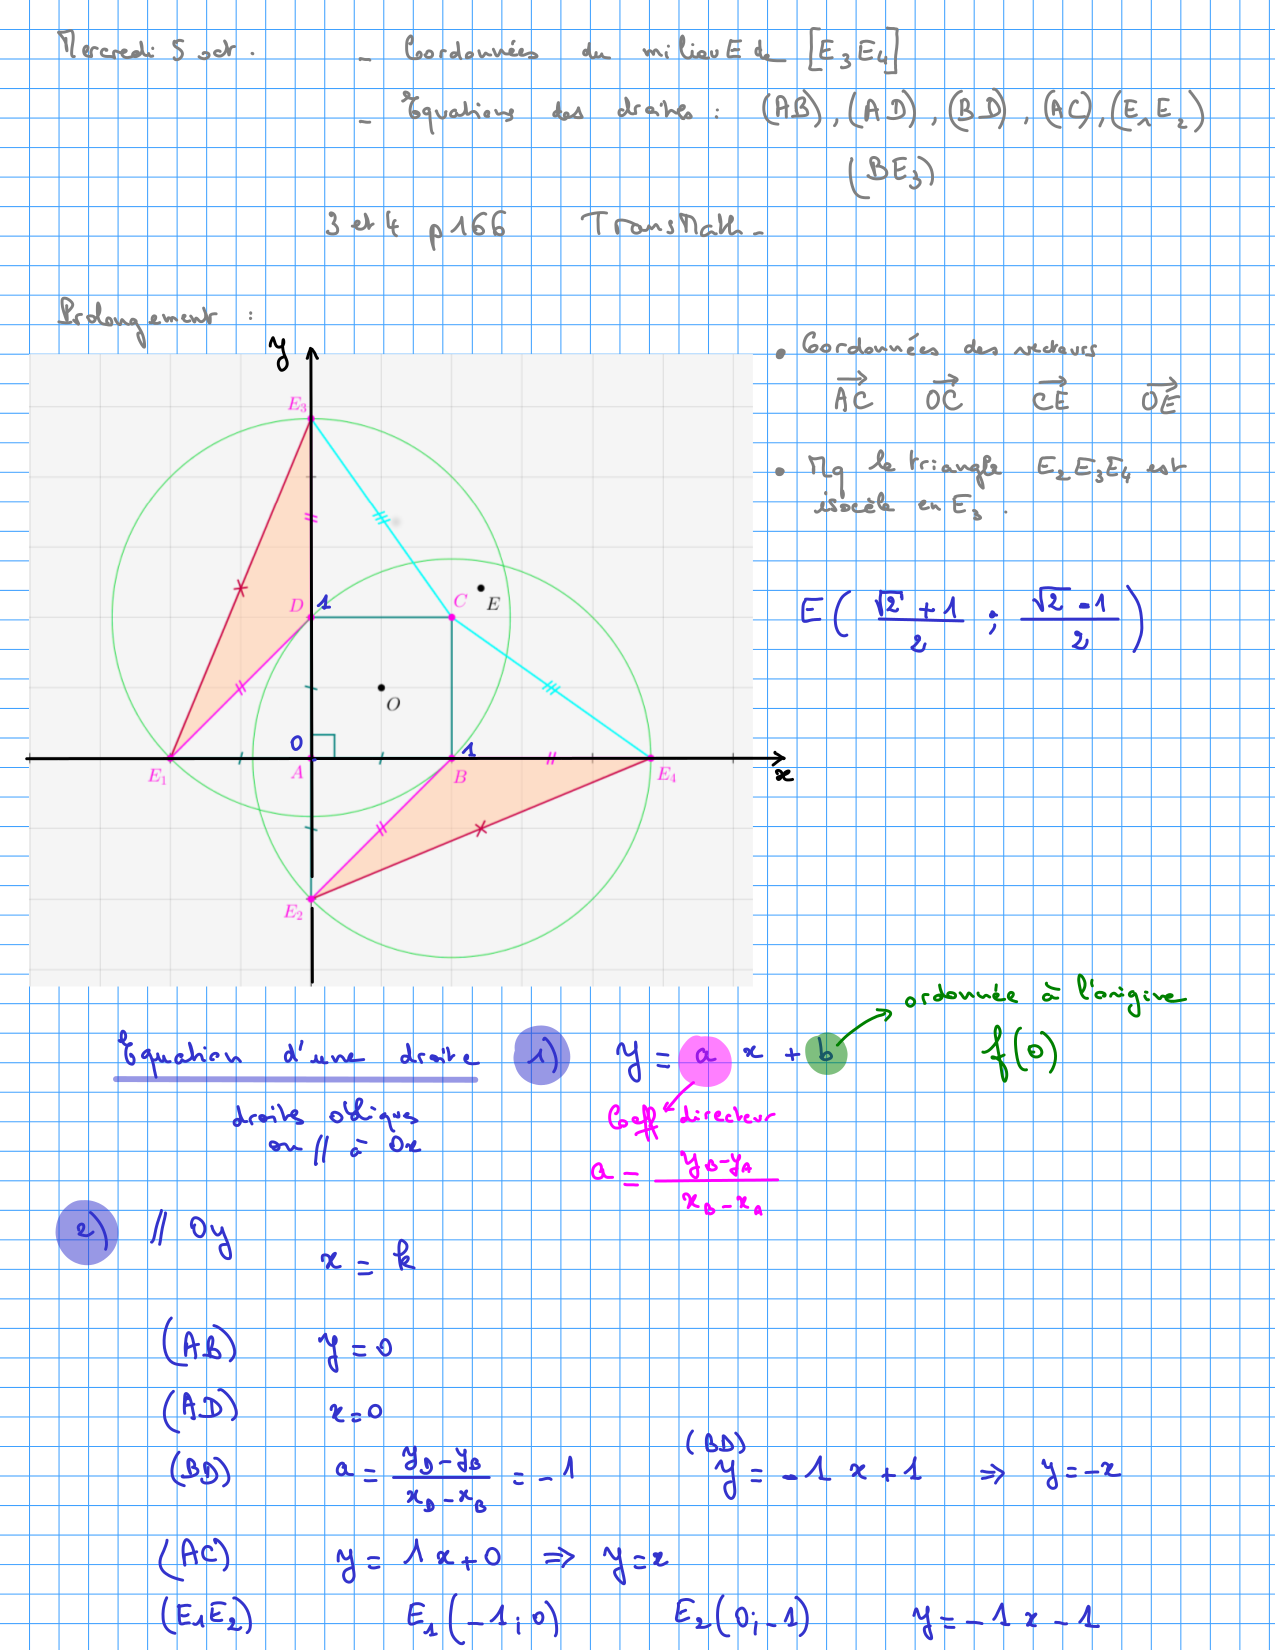 Mercredi 5 oct.
- Coordonnées du milieu E de [E₃E₄]
- Equations des droites : (AB), (AD), (BD), (AC), (E₁E₂)
(BE₃)
3 et 4 p 166 TransMath -
Prolongement :
y
E₃
D 1
C
E
O
0
A
1
B
E₁
E₄
x
E₂
• Coordonnées des vecteurs
AC→ OC→ CE→ OE→
• Mq le triangle E₂E₃E₄ est
isocèle en E₃.
E( (√2 + 1)/2 ; (√2 - 1)/2 )
ordonnée à l'origine
f(0)
Equation d'une droite 1) y = a x + b
droites obliques
ou // à Ox
Coeff directeur
a = (y_B - y_A)/(x_B - x_A)
2) // Oy
x = k
(AB) y = 0
(AD) x = 0
(BD) a = (y_D - y_B)/(x_D - x_B) = -1 (BD) y = -1 x + 1 ⇒ y = -x
(AC) y = 1x + 0 ⇒ y = x
(E₁E₂) E₁(-1; 0) E₂(0; -1) y = -1 x - 1